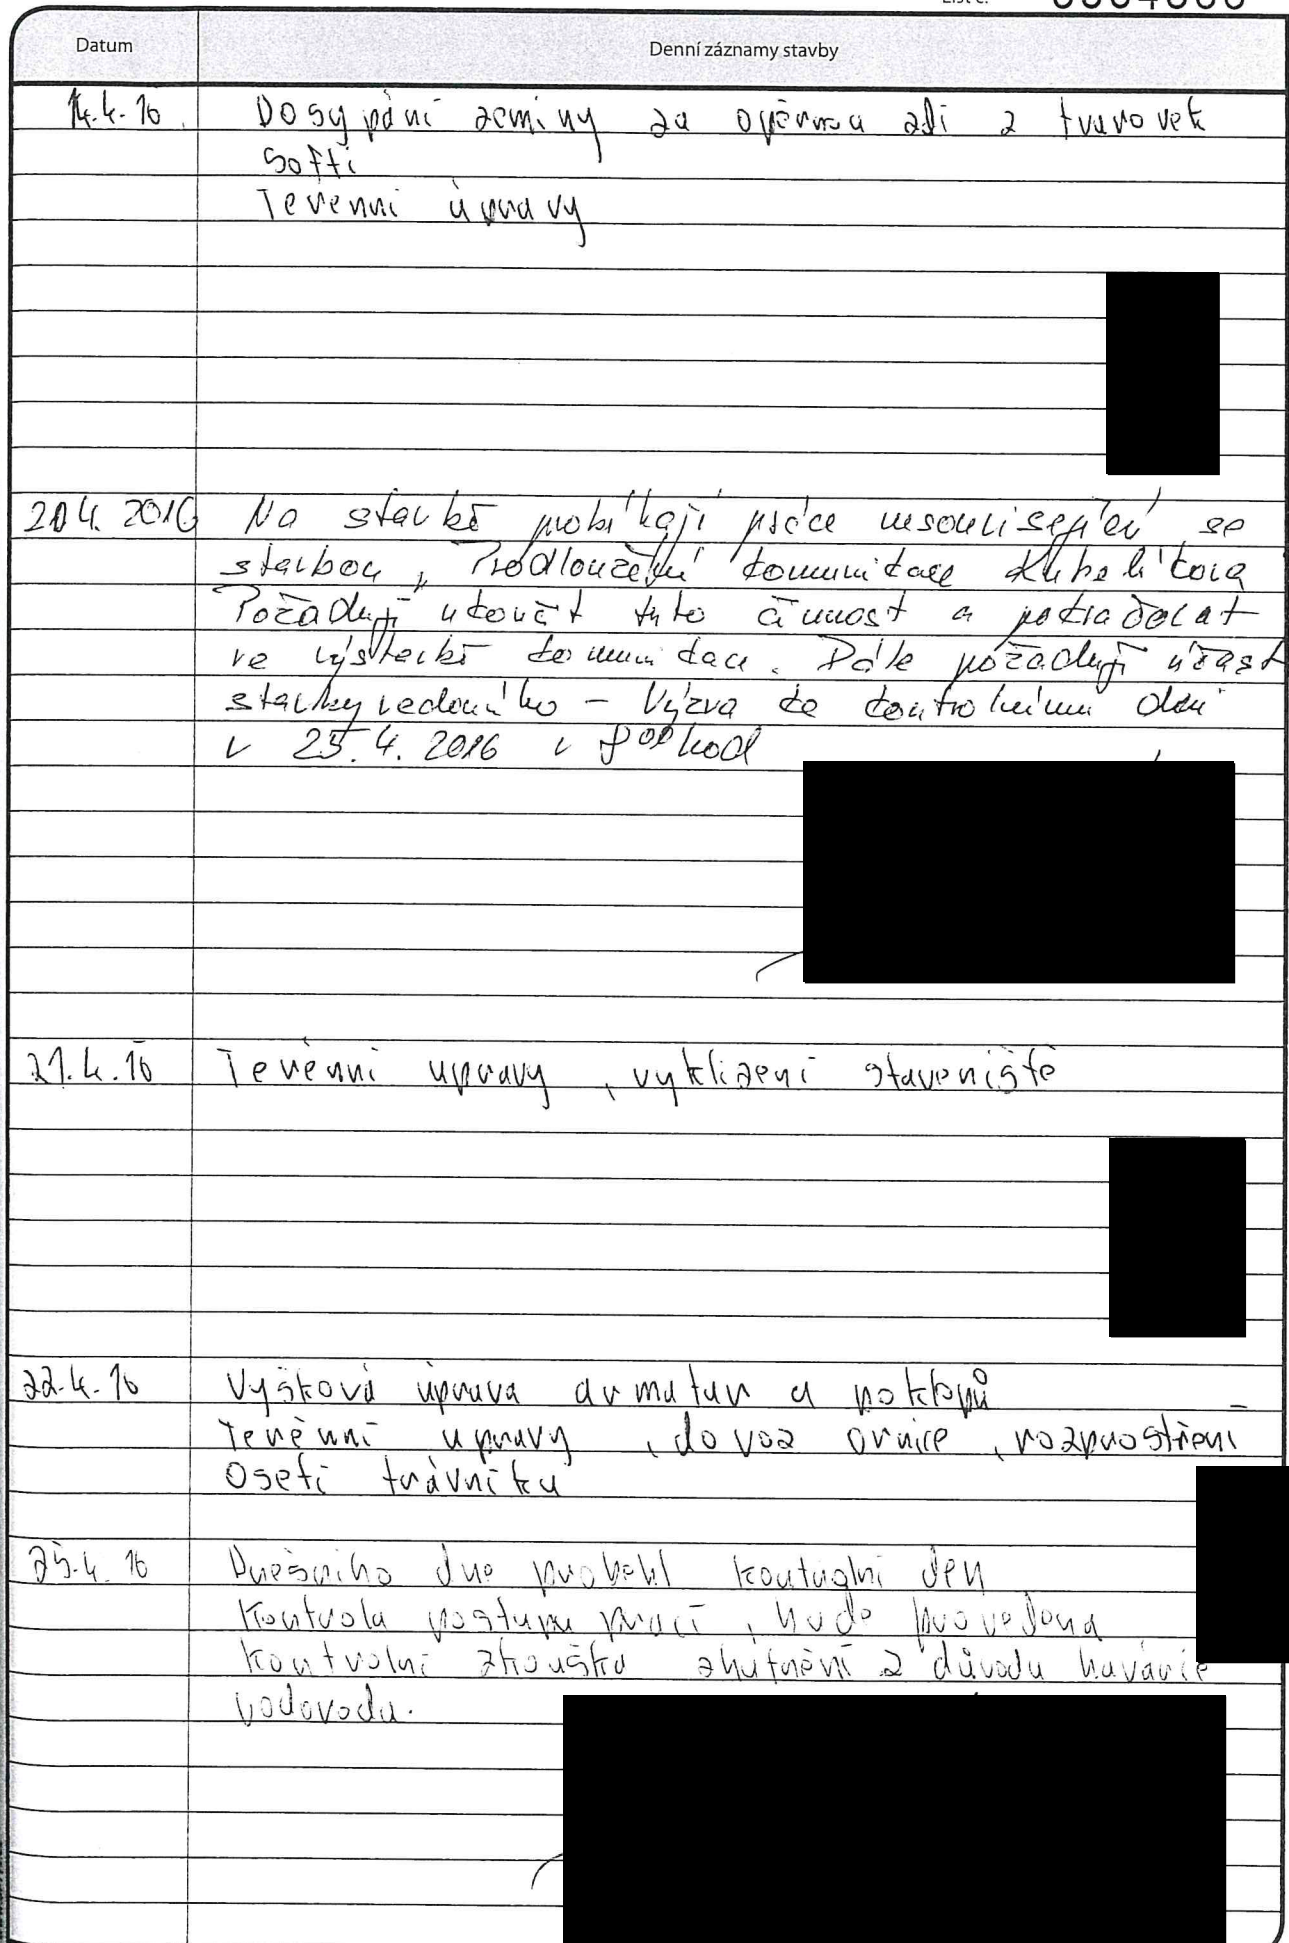 Datum
Denní záznamy stavby
14.4.16 Dosypání zeminy za opěrnou zdi z tvarovek
Softi
Terenni úpravy
20 4. 2016 Na stavbě probíhají práce nesouvisející se
stavbou „Prodloužení komunikace Kubelíkova
Požaduji ukončit tuto činnost a pokračovat
ve výstavbě komunikace. Dále požaduji účast
stavbyvedoucího – Výzva ke kontrolnímu dni
v 25.4. 2016 v 8⁰⁰ hod
21.4.16 Terénni upravy, vyklizeni staveniště
22.4.16 Vyšková úprava armatur a poklopů
Terénni upravy, dovoz ornice, rozprostřeni
Oseti trávniku
25.4.16 Dnešniho dne proběhl kontrolni den
Kontrola postupu praci, bude provedena
kontrolni zkouška zhutnění z důvodu havárie
vodovodu.